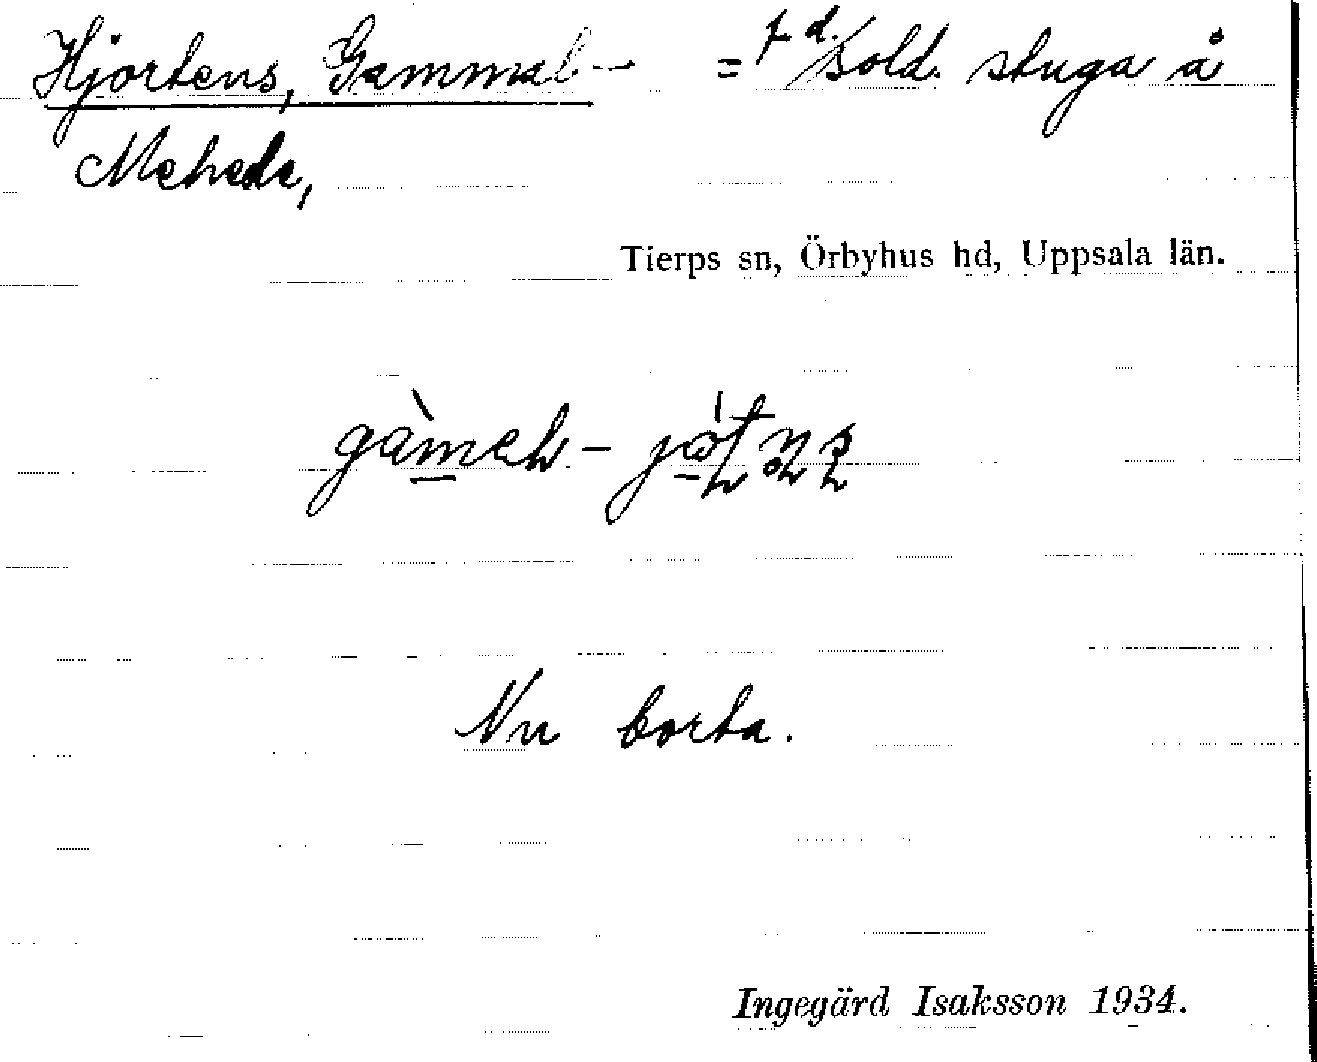 Hjortens, Gammal- = f.d. sold. stuga å
Mehede,
Tierps sn, Örbyhus hd, Uppsala län.
Nu borta.
Ingegärd Isaksson 1934.